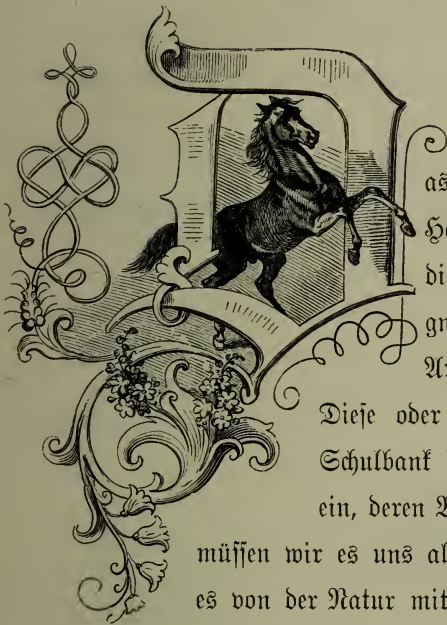 D
as
di
gn
Diese oder
Schulbank
ein, deren
müssen wir es uns al
es von der Natur mit